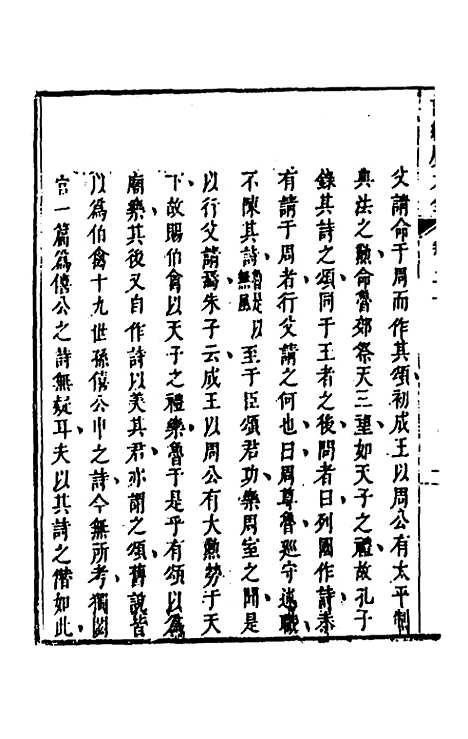 父請命于周而作其頌初成王以周公有太平制
典法之勲命魯郊祭天三望如天子之禮故孔子
錄其詩之頌同于王者之後問者曰列國作詩
有請于周者行父請之何也曰周尊魯廵守述職
不陳其詩魯是以無風至于臣頌君功樂周室之聞是
以行父請焉朱子云成王以周公有大勲勞于天
下故賜伯禽以天子之禮樂魯于是乎有頌以爲
廟樂其後又自作詩以美其君亦謂之頌舊說皆
以爲伯禽十九世孫僖公申之詩今無所考獨閟
宮一篇爲僖公之詩無疑耳夫以其詩之僣如此